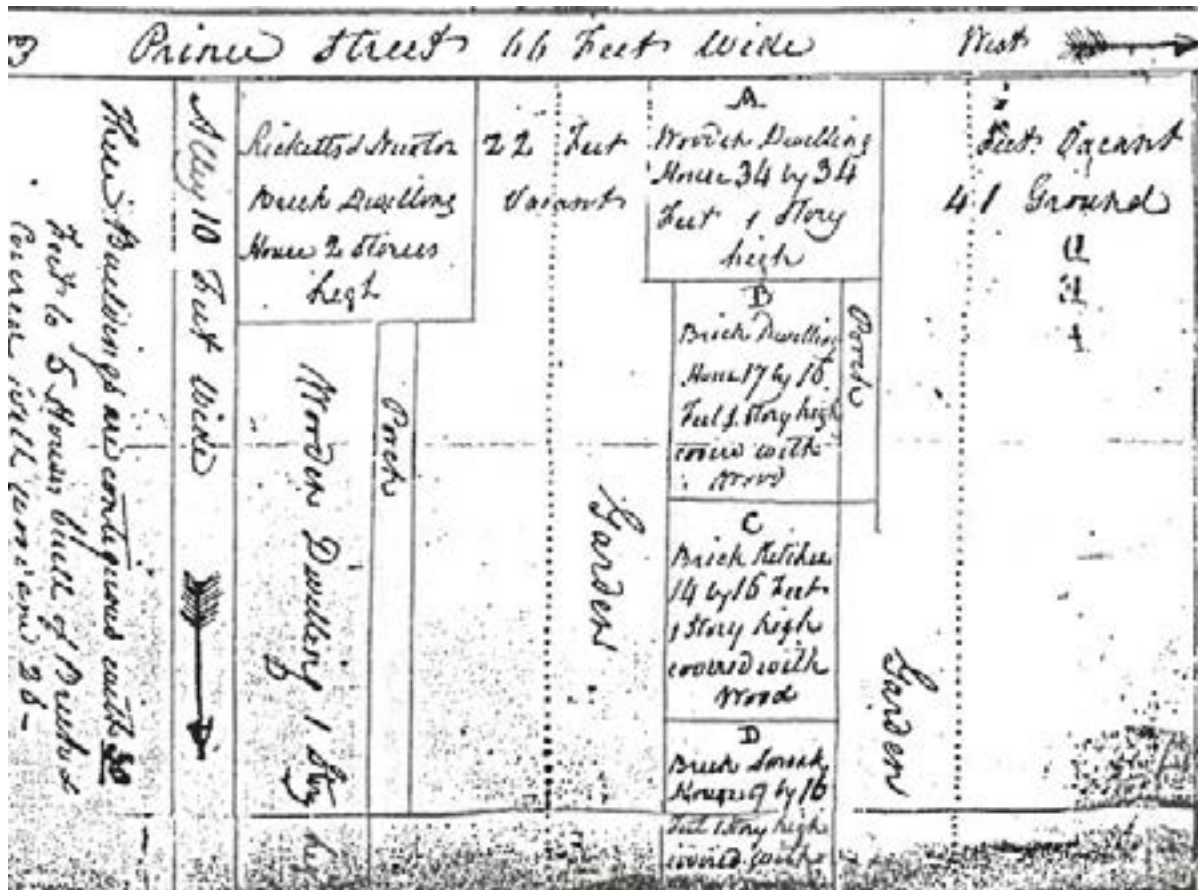 Prince Street 66 Feet Wide West
Alley 10 Feet Wide
These Buildings are contiguous within 30
Feet to 5 Houses built of Brick &
Ricketts & Newton
Brick Dwelling
House 2 Stories
high
Wooden Dwelling 1 Story
Porch
22 Feet
Vacant
Garden
A
Wooden Dwelling
House 34 by 34
Feet 1 Story
high
B
Brick Dwelling
House 17 by 16
Feet 1 Story high
covered with
Wood
Porch
C
Brick Kitchen
14 by 16 Feet
1 Story high
covered with
Wood
D
Brick Smoak
House 9 by 16
Feet 1 Story high
covered with
Garden
Feet Vacant
41 Ground